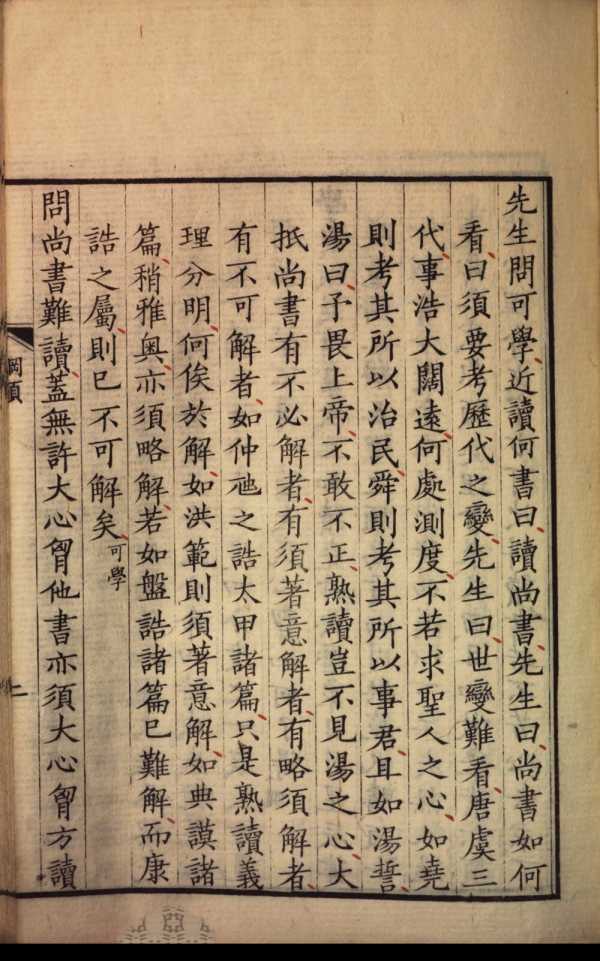 先生問可學近讀何書曰讀尚書先生曰尚書如何
看曰須要考歷代之變先生曰世變難看唐虞三
代事浩大闊遠何處測度不若求聖人之心如堯
則考其所以治民舜則考其所以事君且如湯誓
湯曰予畏上帝不敢不正熟讀豈不見湯之心大
抵尚書有不必解者有須著意解者有略須解者
有不可解者如仲虺之誥太甲諸篇只是熟讀義
理分明何俟於解如洪範則須著意解如典謨諸
篇稍雅奥亦須略解若如盤誥諸篇已難解而康
誥之屬則已不可解矣可學
問尚書難讀蓋無許大心胷他書亦須大心胷方讀
綱領
二